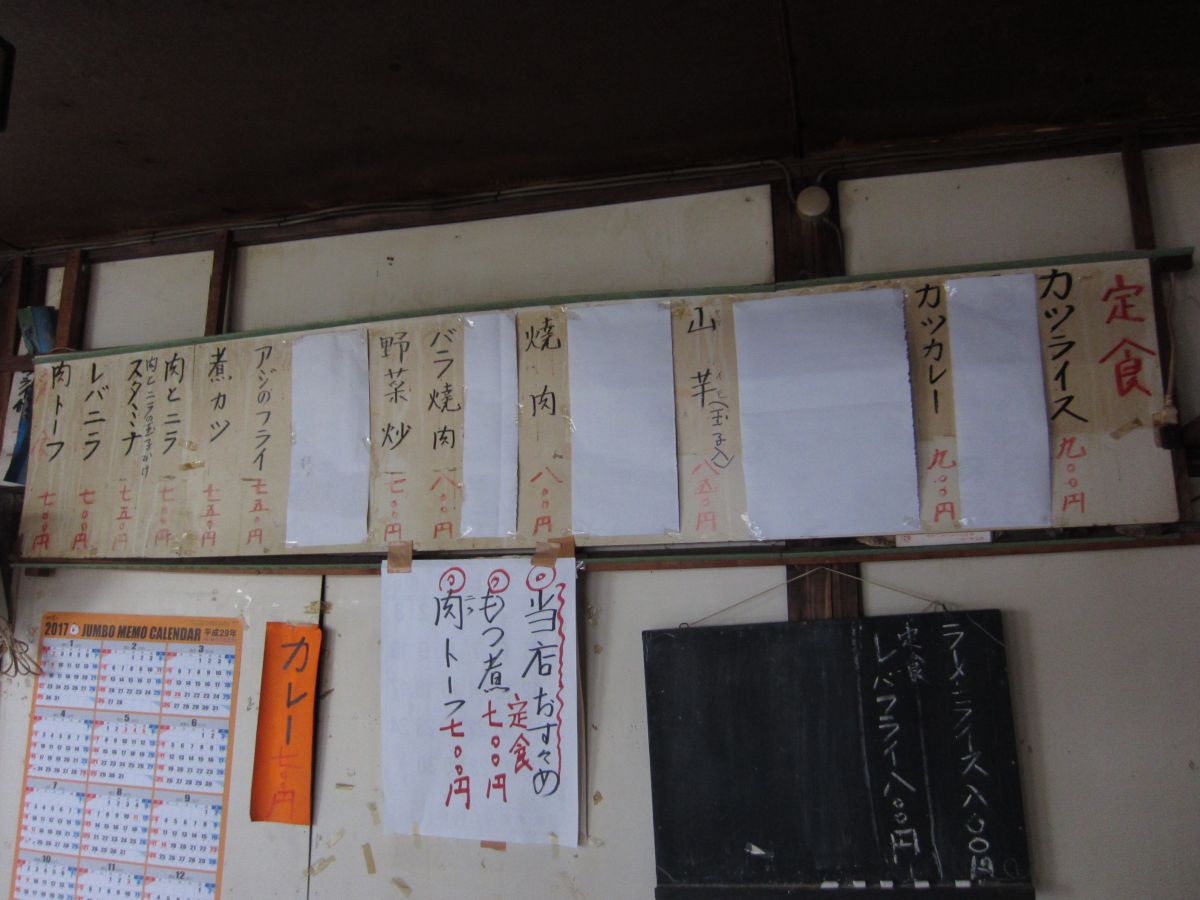 定食
カツライス 九〇〇円
カツカレー 九〇〇円
山芋(玉子入) 八五〇円
焼肉 八〇〇円
バラ焼肉 八〇〇円
野菜炒 七〇〇円
アジのフライ 七五〇円
煮カツ 七五〇円
肉とニラ 七〇〇円
肉とニラの玉子かけ
スタミナ 七五〇円
レバニラ 七〇〇円
肉トーフ 七〇〇円
2017 JUMBO MEMO CALENDAR 平成29年
1 2 3
4 5 6
7 8 9
10 11 12
カレー 七〇〇円
当店おすゝめ
定食
もつ煮 七〇〇円
肉トーフ 七〇〇円
ラーメンライス 八〇〇円
定食
レバフライ 八〇〇円